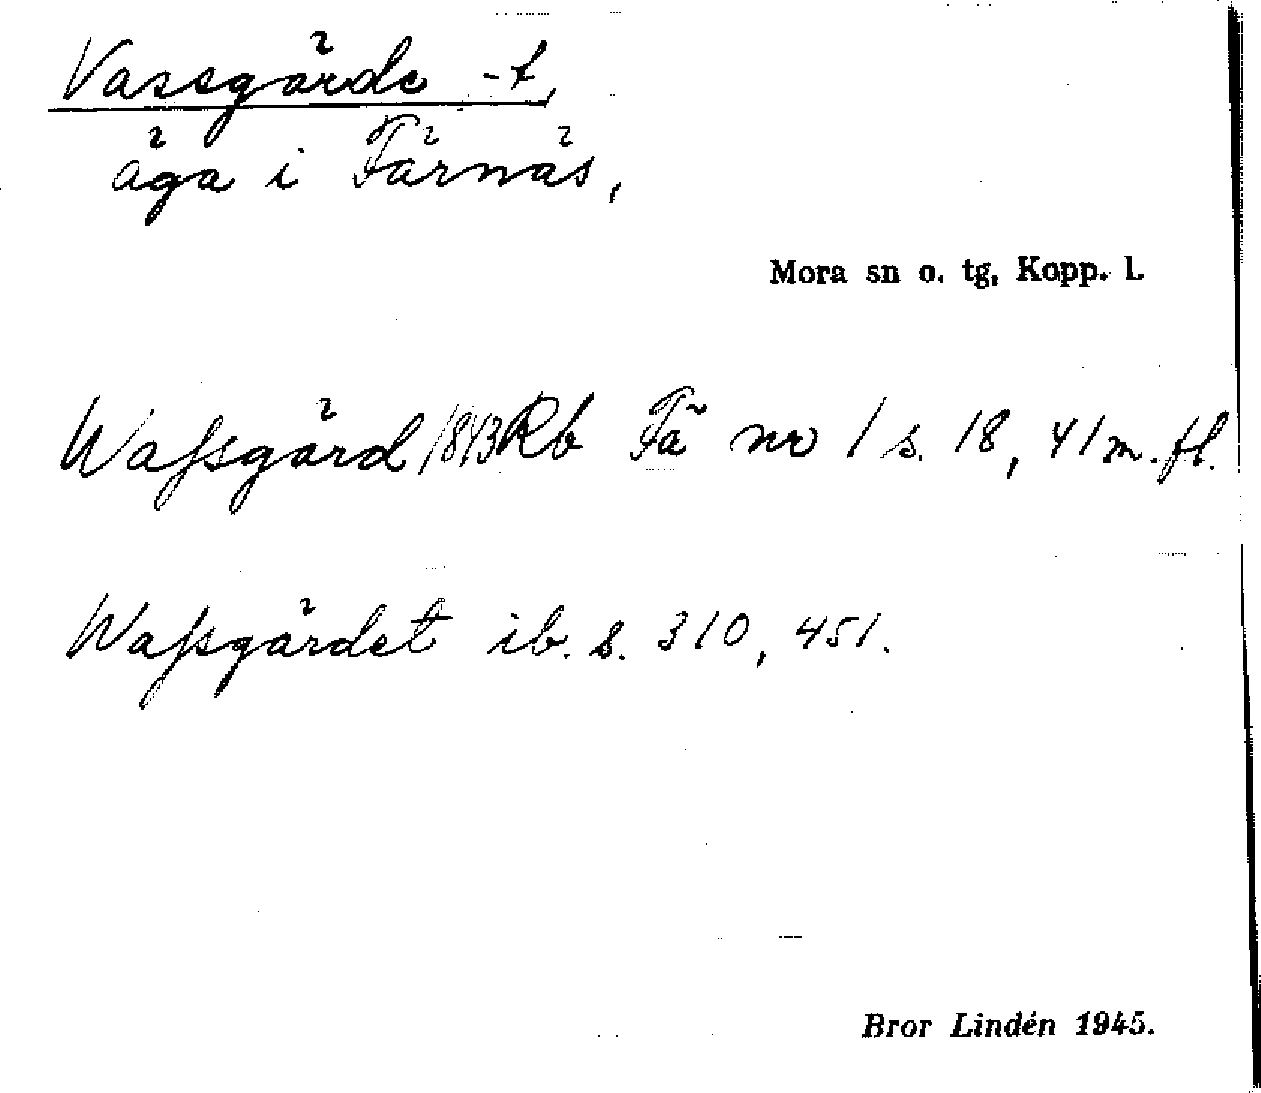 Vassgärde -t,
äga i Färnäs,
Mora sn o. tg, Kopp. l.
Wassgärd 1843 Rb Fä nr 1 s. 18, 41 m. fl.
Wassgärdet ib. s. 310, 451.
Bror Lindén 1945.